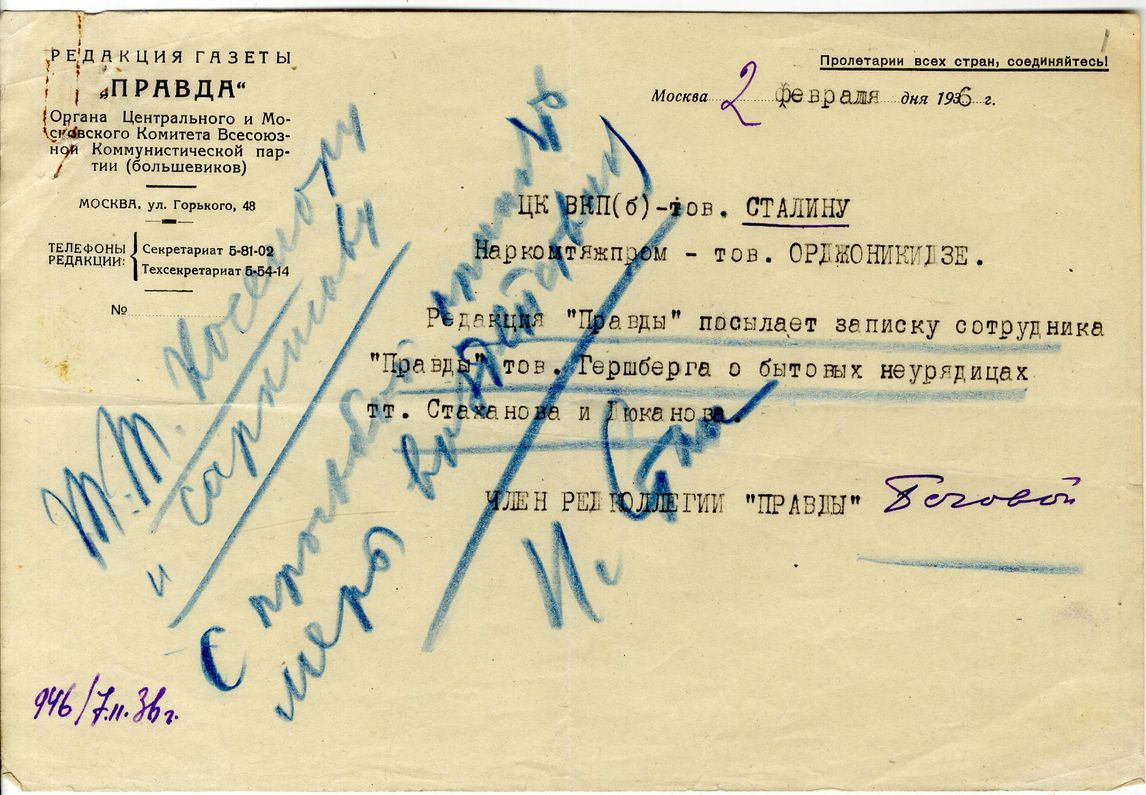 РЕДАКЦИЯ ГАЗЕТЫ
„ПРАВДА“
Органа Центрального и Мо-
сковского Комитета Всесоюз-
ной Коммунистической пар-
тии (большевиков)
МОСКВА, ул. Горького, 48
ТЕЛЕФОНЫ РЕДАКЦИИ:
Секретариат 5-81-02
Техсекретариат 5-54-14
№
1
Пролетарии всех стран, соединяйтесь!
Москва 2 февраля дня 1936 г.
ЦК ВКП(б)-тов. СТАЛИНУ
Наркомтяжпром - тов. ОРДЖОНИКИДЗЕ.
Редакция "Правды" посылает записку сотрудника
"Правды" тов. Гершберга о бытовых неурядицах
тт. Стаханова и Дюканова.
ЧЛЕН РЕДКОЛЛЕГИИ "ПРАВДЫ"
Т.т. Косиору
и Саркисову
С просьбой принять
меры
И. Ст
946/7.II.36г.